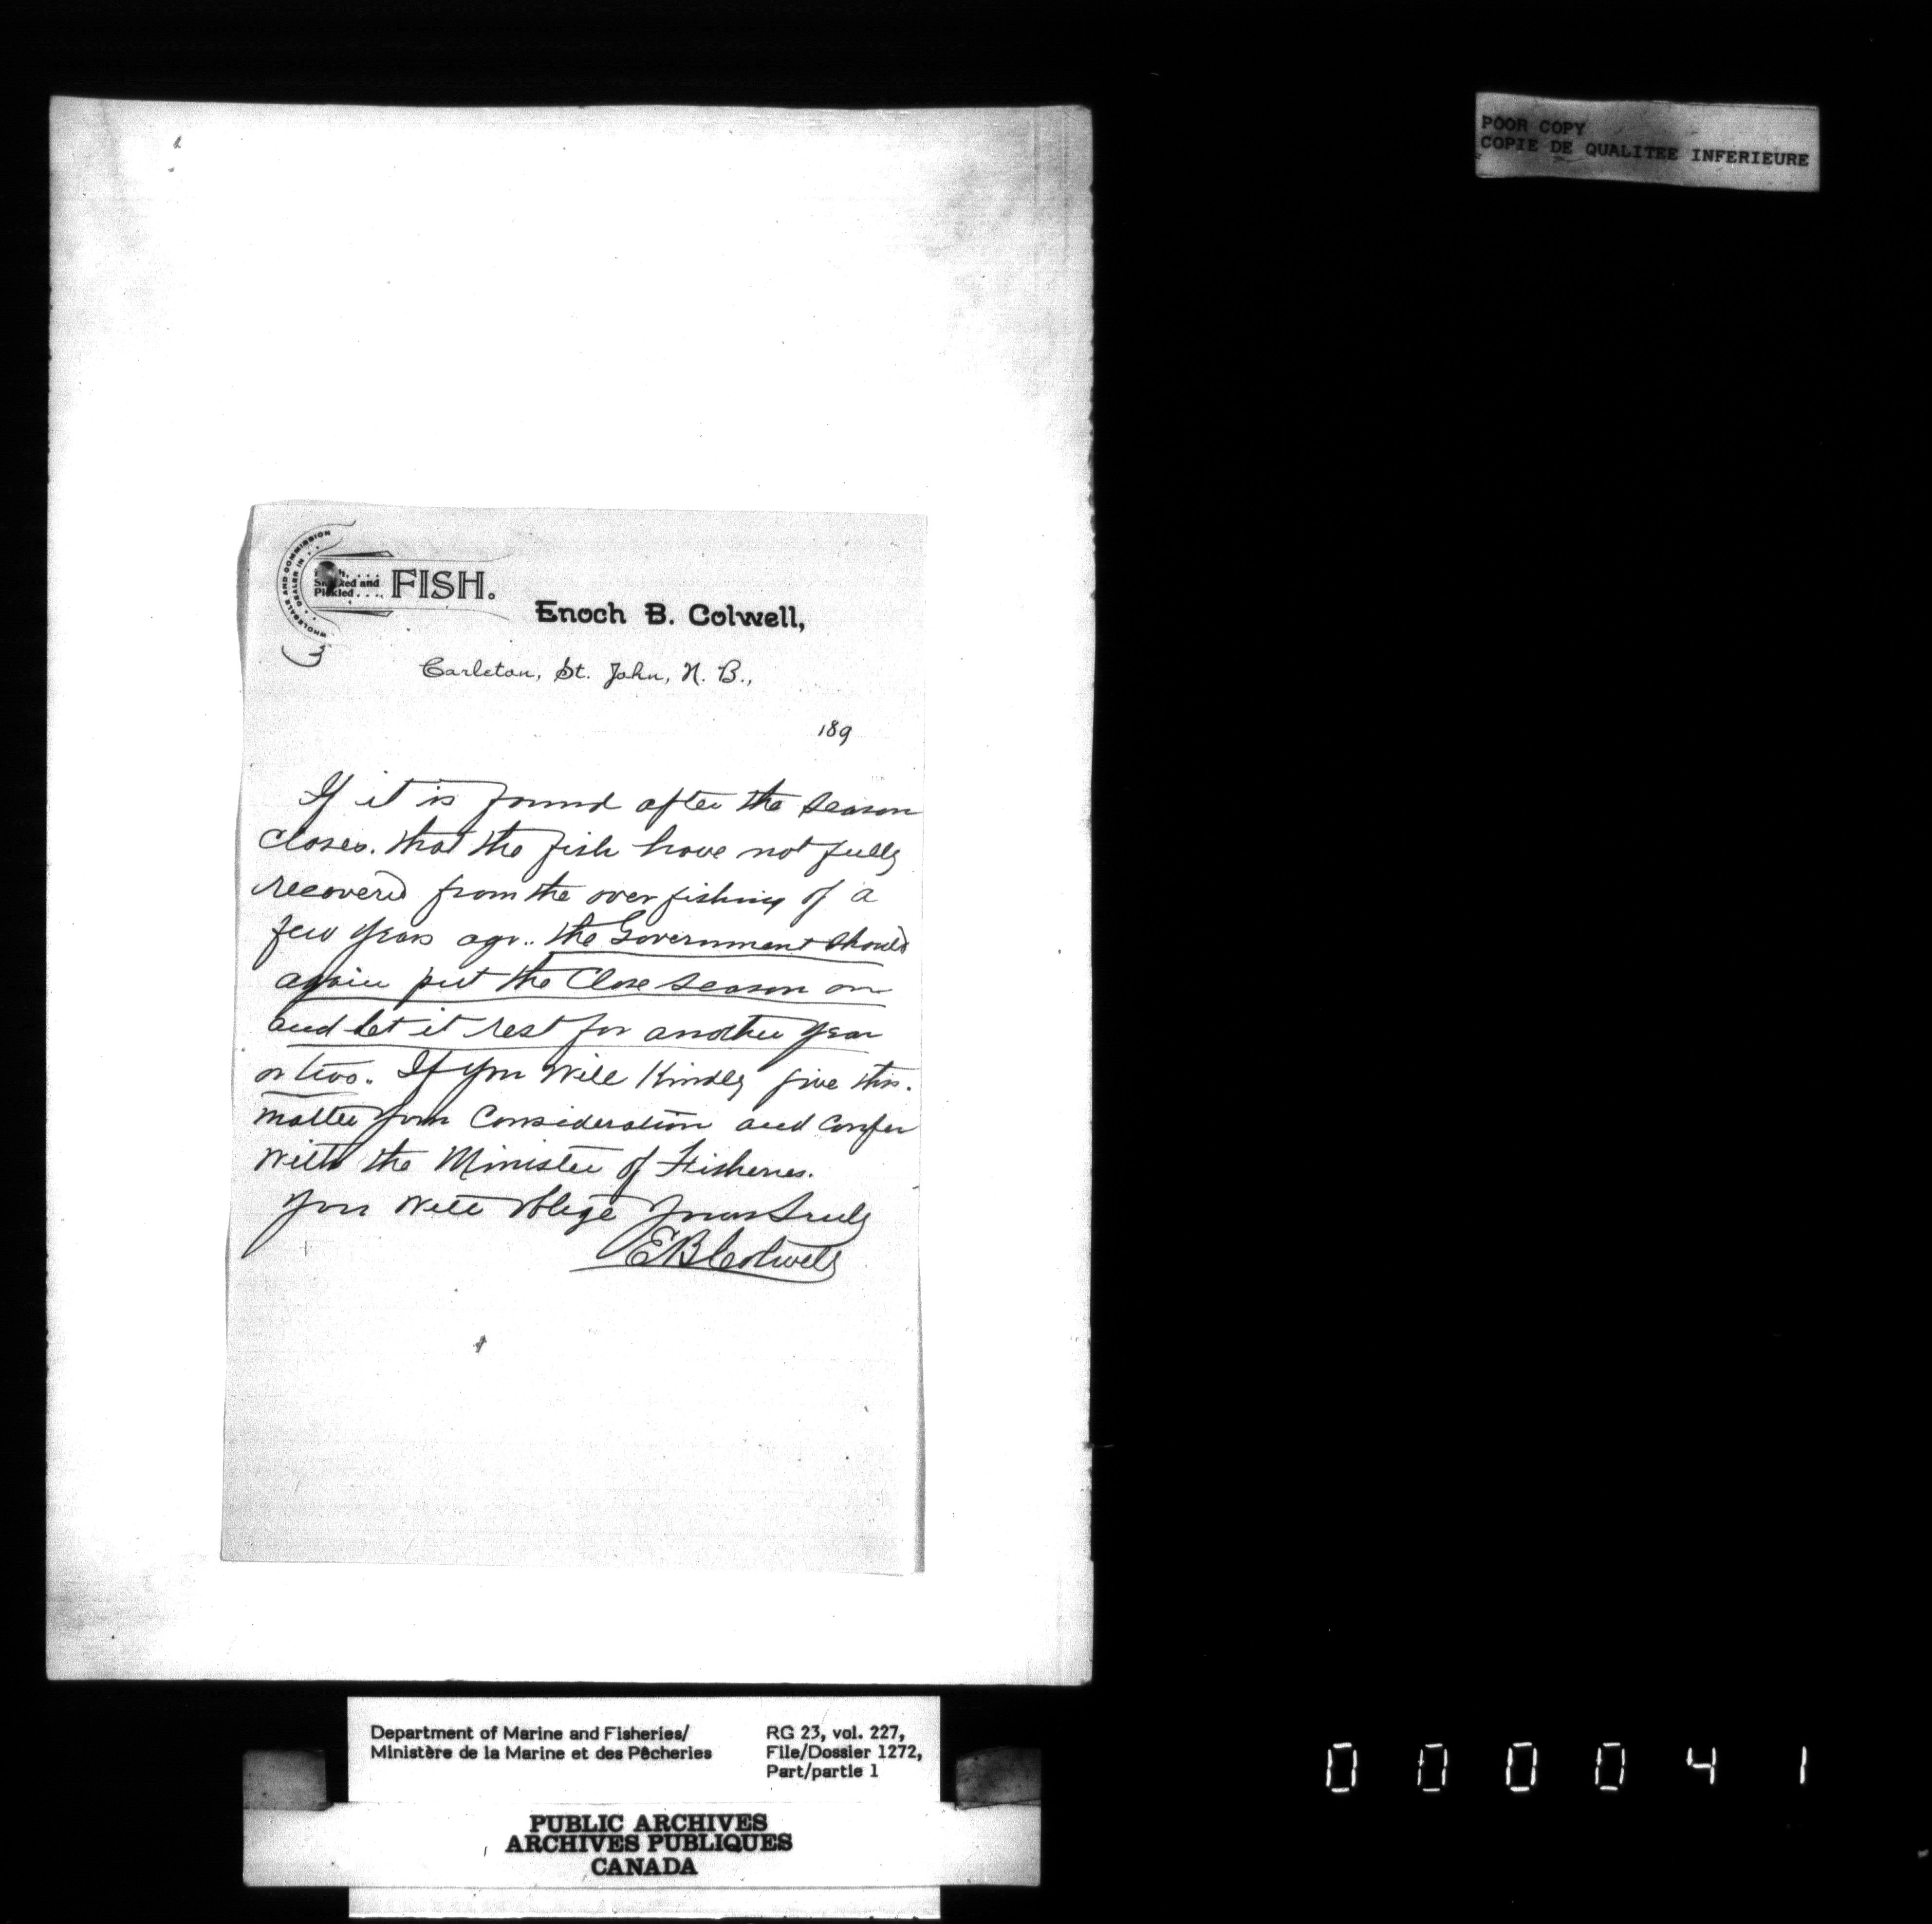 POOR COPY
COPIE DE QUALITEE INFERIEURE
WHOLESALE AND COMMISSION
DEALER IN
Smoked and
Pickled . . .
FISH.
Enoch B. Colwell,
Carleton, St. John, N. B.,
189
3
If it is found after the season
closes. that the fish have not fully
recovered from the over fishing of a
few years ago.. the Government should
again put the Close season on
and let it rest for another year
or two. If you will Kindly give this.
matter your Consideration and confer
with the Minister of Fisheries.
you will oblige Yours truly
E B Colwell
Department of Marine and Fisheries/
Ministère de la Marine et des Pêcheries
RG 23, vol. 227,
File/Dossier 1272,
Part/partie 1
PUBLIC ARCHIVES
ARCHIVES PUBLIQUES
CANADA
000041